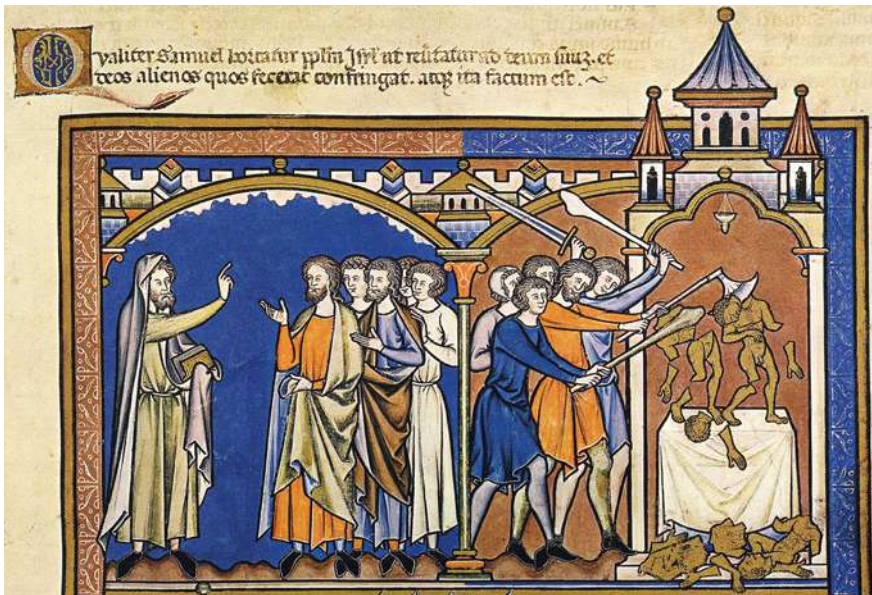 Qualiter Samuel hortatur pplm Isrl ut reutatur ad deum suuz. et
deos alienos quos fecerat confringat. atqz ita factum est.